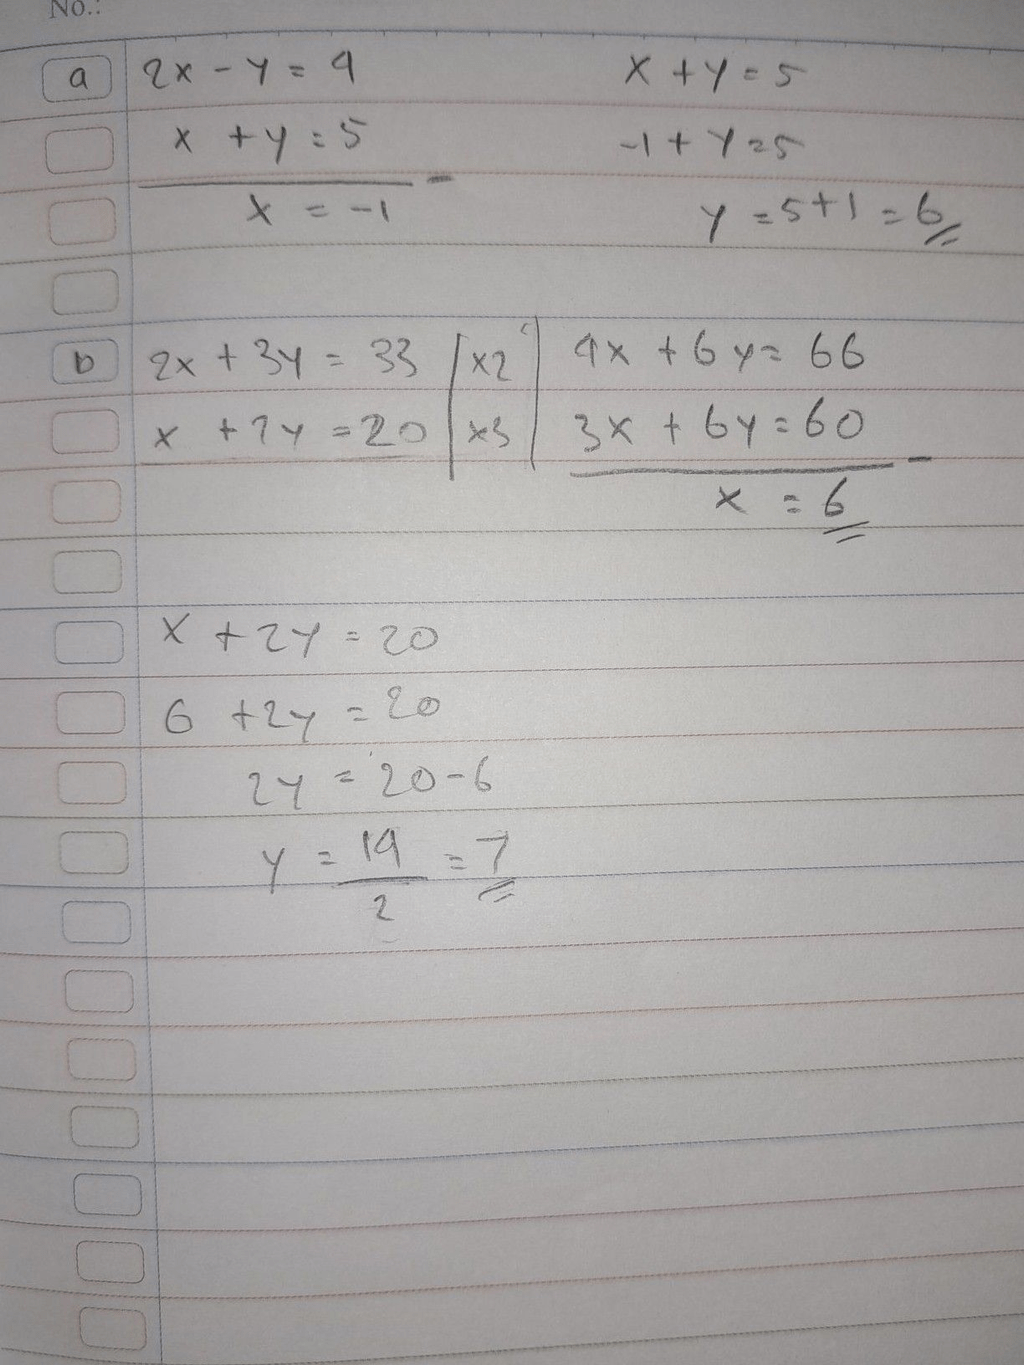 No.:
a 2x - y = 4 x + y = 5
x + y = 5 -1 + y = 5
x = -1 y = 5 + 1 = 6
b 2x + 3y = 33 | x2 | 4x + 6y = 66
x + 2y = 20 | x3 | 3x + 6y = 60 -
x = 6
x + 2y = 20
6 + 2y = 20
2y = 20 - 6
y = 14/2 = 7